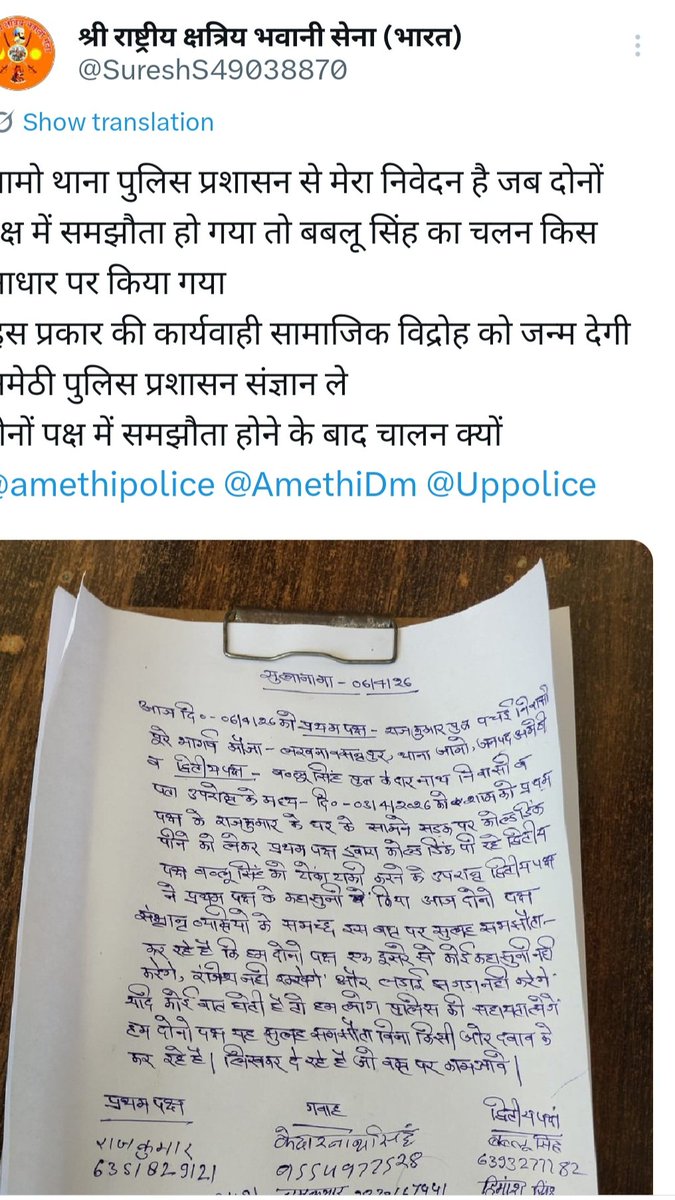 श्री राष्ट्रीय क्षत्रिय भवानी सेना (भारत)
@SureshS49038870
Show translation
ामो थाना पुलिस प्रशासन से मेरा निवेदन है जब दोनों
क्ष में समझौता हो गया तो बबलू सिंह का चलन किस
ाधार पर किया गया
इस प्रकार की कार्यवाही सामाजिक विद्रोह को जन्म देगी
मेठी पुलिस प्रशासन संज्ञान ले
ोनों पक्ष में समझौता होने के बाद चालन क्यों
@amethipolice @AmethiDm @Uppolice
सुलहनामा - 06/4/26
आज दि०- 06/4/26 को प्रथम पक्ष - राजकुमार पुत्र पंचई निवासी
पूरे भार्गव मौजा - थाना जामो, जनपद अमेठी
व द्वितीय पक्ष - बब्लू सिंह पुत्र केदार नाथ निवासी व
पता उपरोक्त के मध्य- दि०- 03/4/2026 को शाम को प्रथम
पक्ष के राजकुमार के घर के सामने सड़क पर कोल्ड ड्रिंक
पीने को लेकर प्रथम पक्ष द्वारा कोल्ड ड्रिंक पी रहे द्वितीय
पक्ष बब्लू सिंह को टोका टाकी करने के उपरान्त द्वितीय पक्ष
ने प्रथम पक्ष के कहासुनी किया आज दोनो पक्ष
संभ्रान्त व्यक्तियो के समक्ष इस बात पर सुलह समझौता-
कर रहे है कि हम दोनो पक्ष एक दूसरे से कोई कहासुनी नही
करेगे, रंजिश नही रक्खेगे और लडाई झगडा नही करेगे
यदि कोई बात होती है तो हम लोग पुलिस की सहायता लेगें
हम दोनो पक्ष यह सुलह समझौता बिना किसी जोर दबाव के
कर रहे है। लिखकर दे रहे है जो वक्त पर काम आवे।
प्रथम पक्ष
गवाह
द्वितीय पक्ष
राजकुमार
केदारनाथ सिंह
बब्लू सिंह
6351829121
9554977528
6393277182
हिमांशु सिंह